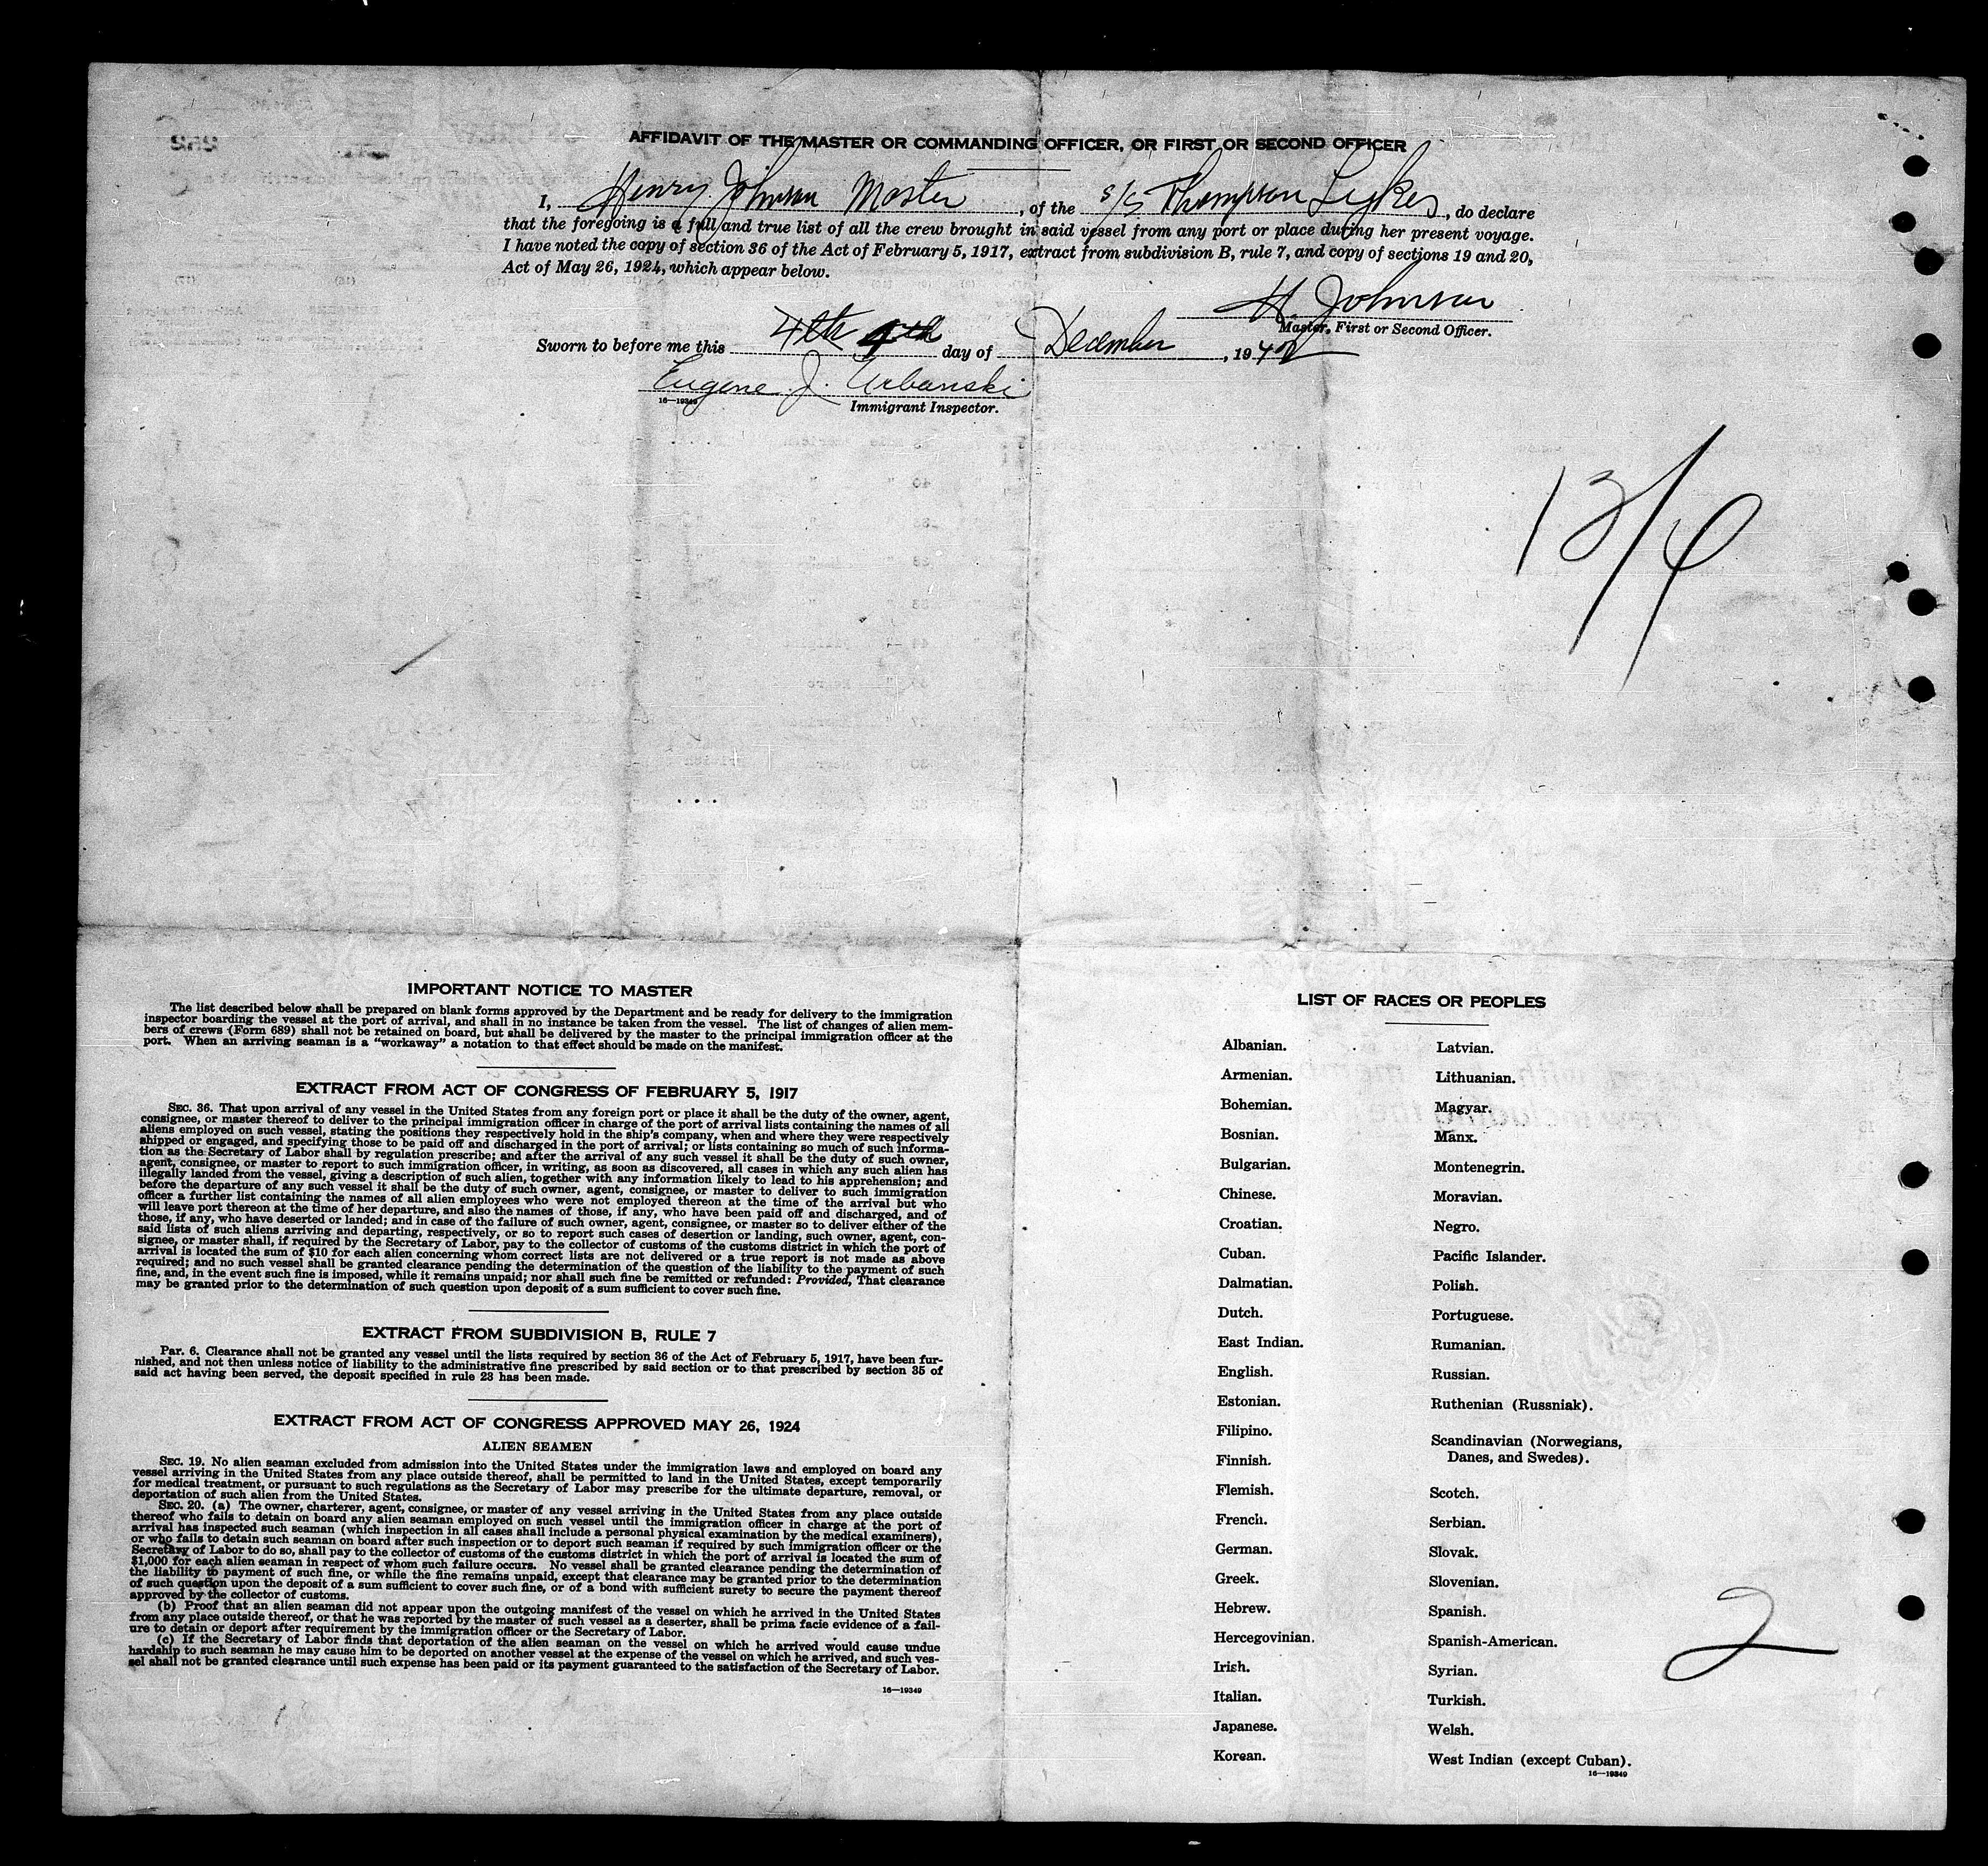 AFFIDAVIT OF THE MASTER OR COMMANDING OFFICER, OR FIRST OR SECOND OFFICER
I, Henry Johnson Master, of the S/S Thompson Lykes, do declare
that the foregoing is a full and true list of all the crew brought in said vessel from any port or place during her present voyage.
I have noted the copy of section 36 of the Act of February 5, 1917, extract from subdivision B, rule 7, and copy of sections 19 and 20,
Act of May 26, 1924, which appear below.
H. Johnson
Master, First or Second Officer.
Sworn to before me this 4th 4th day of December, 1942
Eugene J. Urbanski
16—19349
Immigrant Inspector.
IMPORTANT NOTICE TO MASTER
The list described below shall be prepared on blank forms approved by the Department and be ready for delivery to the immigration
inspector boarding the vessel at the port of arrival, and shall in no instance be taken from the vessel. The list of changes of alien mem-
bers of crews (Form 689) shall not be retained on board, but shall be delivered by the master to the principal immigration officer at the
port. When an arriving seaman is a "workaway" a notation to that effect should be made on the manifest.
EXTRACT FROM ACT OF CONGRESS OF FEBRUARY 5, 1917
SEC. 36. That upon arrival of any vessel in the United States from any foreign port or place it shall be the duty of the owner, agent,
consignee, or master thereof to deliver to the principal immigration officer in charge of the port of arrival lists containing the names of all
aliens employed on such vessel, stating the positions they respectively hold in the ship's company, when and where they were respectively
shipped or engaged, and specifying those to be paid off and discharged in the port of arrival; or lists containing so much of such informa-
tion as the Secretary of Labor shall by regulation prescribe; and after the arrival of any such vessel it shall be the duty of such owner,
agent, consignee, or master to report to such immigration officer, in writing, as soon as discovered, all cases in which any such alien has
illegally landed from the vessel, giving a description of such alien, together with any information likely to lead to his apprehension; and
before the departure of any such vessel it shall be the duty of such owner, agent, consignee, or master to deliver to such immigration
officer a further list containing the names of all alien employees who were not employed thereon at the time of the arrival but who
will leave port thereon at the time of her departure, and also the names of those, if any, who have been paid off and discharged, and of
those, if any, who have deserted or landed; and in case of the failure of such owner, agent, consignee, or master so to deliver either of the
said lists of such aliens arriving and departing, respectively, or so to report such cases of desertion or landing, such owner, agent, con-
signee, or master shall, if required by the Secretary of Labor, pay to the collector of customs of the customs district in which the port of
arrival is located the sum of $10 for each alien concerning whom correct lists are not delivered or a true report is not made as above
required; and no such vessel shall be granted clearance pending the determination of the question of the liability to the payment of such
fine, and, in the event such fine is imposed, while it remains unpaid; nor shall such fine be remitted or refunded: Provided, That clearance
may be granted prior to the determination of such question upon deposit of a sum sufficient to cover such fine.
EXTRACT FROM SUBDIVISION B, RULE 7
Par. 6. Clearance shall not be granted any vessel until the lists required by section 36 of the Act of February 5, 1917, have been fur-
nished, and not then unless notice of liability to the administrative fine prescribed by said section or to that prescribed by section 35 of
said act having been served, the deposit specified in rule 23 has been made.
EXTRACT FROM ACT OF CONGRESS APPROVED MAY 26, 1924
ALIEN SEAMEN
SEC. 19. No alien seaman excluded from admission into the United States under the immigration laws and employed on board any
vessel arriving in the United States from any place outside thereof, shall be permitted to land in the United States, except temporarily
for medical treatment, or pursuant to such regulations as the Secretary of Labor may prescribe for the ultimate departure, removal, or
deportation of such alien from the United States.
SEC. 20. (a) The owner, charterer, agent, consignee, or master of any vessel arriving in the United States from any place outside
thereof who fails to detain on board any alien seaman employed on such vessel until the immigration officer in charge at the port of
arrival has inspected such seaman (which inspection in all cases shall include a personal physical examination by the medical examiners),
or who fails to detain such seaman on board after such inspection or to deport such seaman if required by such immigration officer or the
Secretary of Labor to do so, shall pay to the collector of customs of the customs district in which the port of arrival is located the sum of
$1,000 for each alien seaman in respect of whom such failure occurs. No vessel shall be granted clearance pending the determination of
the liability to payment of such fine, or while the fine remains unpaid, except that clearance may be granted prior to the determination
of such question upon the deposit of a sum sufficient to cover such fine, or of a bond with sufficient surety to secure the payment thereof
approved by the collector of customs.
(b) Proof that an alien seaman did not appear upon the outgoing manifest of the vessel on which he arrived in the United States
from any place outside thereof, or that he was reported by the master of such vessel as a deserter, shall be prima facie evidence of a fail-
ure to detain or deport after requirement by the immigration officer or the Secretary of Labor.
(c) If the Secretary of Labor finds that deportation of the alien seaman on the vessel on which he arrived would cause undue
hardship to such seaman he may cause him to be deported on another vessel at the expense of the vessel on which he arrived, and such ves-
sel shall not be granted clearance until such expense has been paid or its payment guaranteed to the satisfaction of the Secretary of Labor.
16—19349
LIST OF RACES OR PEOPLES
Albanian.
Armenian.
Bohemian.
Bosnian.
Bulgarian.
Chinese.
Croatian.
Cuban.
Dalmatian.
Dutch.
East Indian.
English.
Estonian.
Filipino.
Finnish.
Flemish.
French.
German.
Greek.
Hebrew.
Hercegovinian.
Irish.
Italian.
Japanese.
Korean.
Latvian.
Lithuanian.
Magyar.
Manx.
Montenegrin.
Moravian.
Negro.
Pacific Islander.
Polish.
Portuguese.
Rumanian.
Russian.
Ruthenian (Russniak).
Scandinavian (Norwegians,
Danes, and Swedes).
Scotch.
Serbian.
Slovak.
Slovenian.
Spanish.
Spanish-American.
Syrian.
Turkish.
Welsh.
West Indian (except Cuban).
16—19349
2